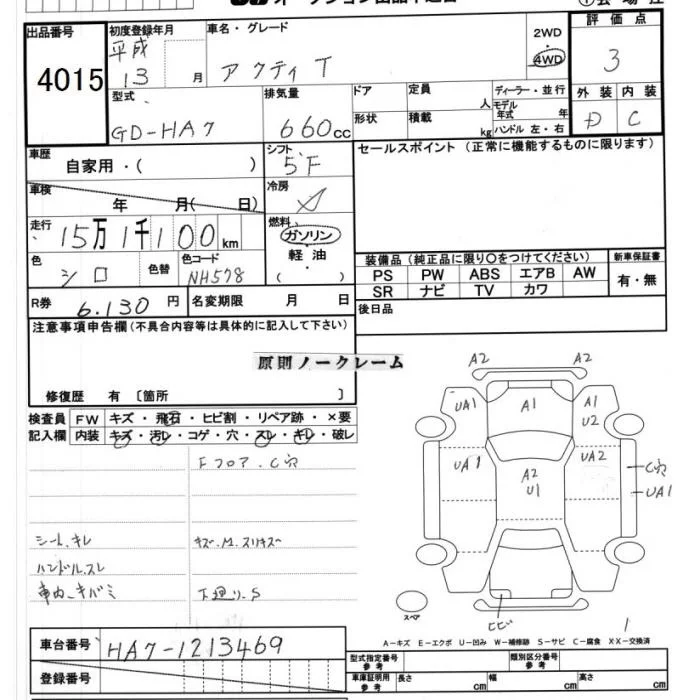 出品番号
4015
初度登録年月
平成
13 月
車名・グレード
アクティ T
2WD
4WD
評価点
3
型式
GD-HA7
排気量
660cc
ドア
形状
定員
人
積載
kg
ディーラー・並行
モデル
年式 年
ハンドル 左・右
外装 内装
D C
車歴
自家用・( )
シフト
5F
セールスポイント (正常に機能するものに限ります)
車検
年 月( 日)
冷房
走行
15万1千100km
燃料
ガソリン
軽油
( )
色
シロ
色替
色コード
NH578
装備品 (純正品に限り〇をつけてください)
新車保証書
PS PW ABS エアB AW
SR ナビ TV カワ
有・無
R券
6.130 円
名変期限 月 日
後日品
注意事項申告欄(不具合内容等は具体的に記入して下さい)
原則ノークレーム
修復歴 有 〔箇所 〕
検査員 FW キズ・飛石・ヒビ割・リペア跡・×要
記入欄 内装 キズ・汚レ・コゲ・穴・スレ・キレ・破レ
Fフロア.C穴
シート.キレ
キズ.M.スリキズ
ハンドル.スレ
車内.キバミ
下廻リ.S
A2 A2
UA1 A1 A1
U2
UA1 A2
U1
UA2
C穴
UA1
スペア
ヒビ
1
A-キズ E-エクボ U-凹み W-補修跡 S-サビ C-腐食 XX-交換済
車台番号
HA7-1213469
登録番号
型式指定番号
参考
類別区分番号
参考
車庫証明用
参考
長さ cm 幅 cm 高さ cm